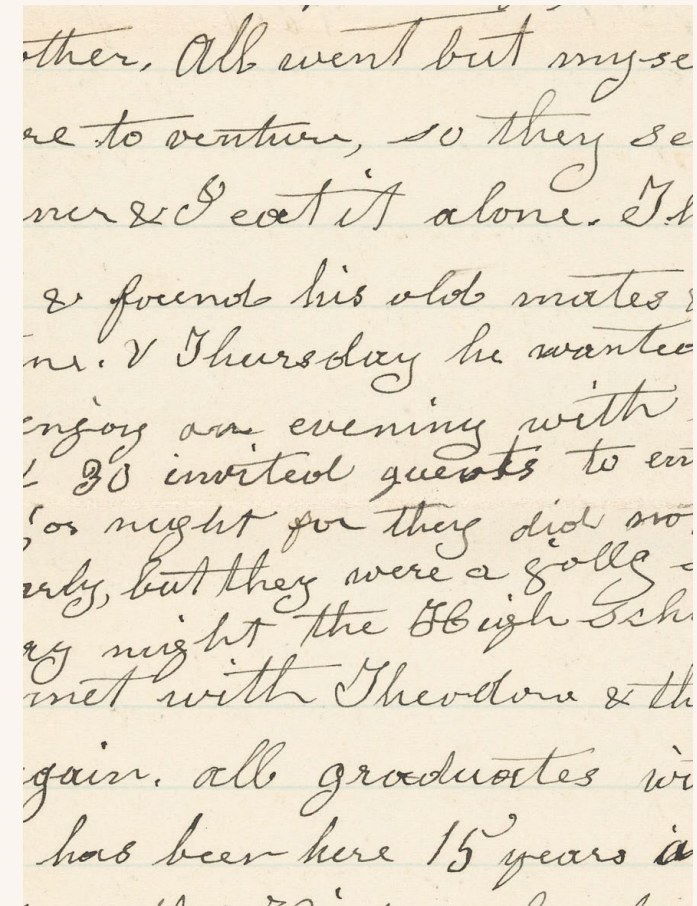 other. All went but myse
re to venture, so they se
ner & I eat it alone. Th
& found his old mates &
me. V Thursday he wanted
enjoy an evening with
30 invited guests to en
or night for they did no
arly, but they were a golly
ay night the High Sch
met with Theodore & th
gain. all graduates wi
has been here 15 years a